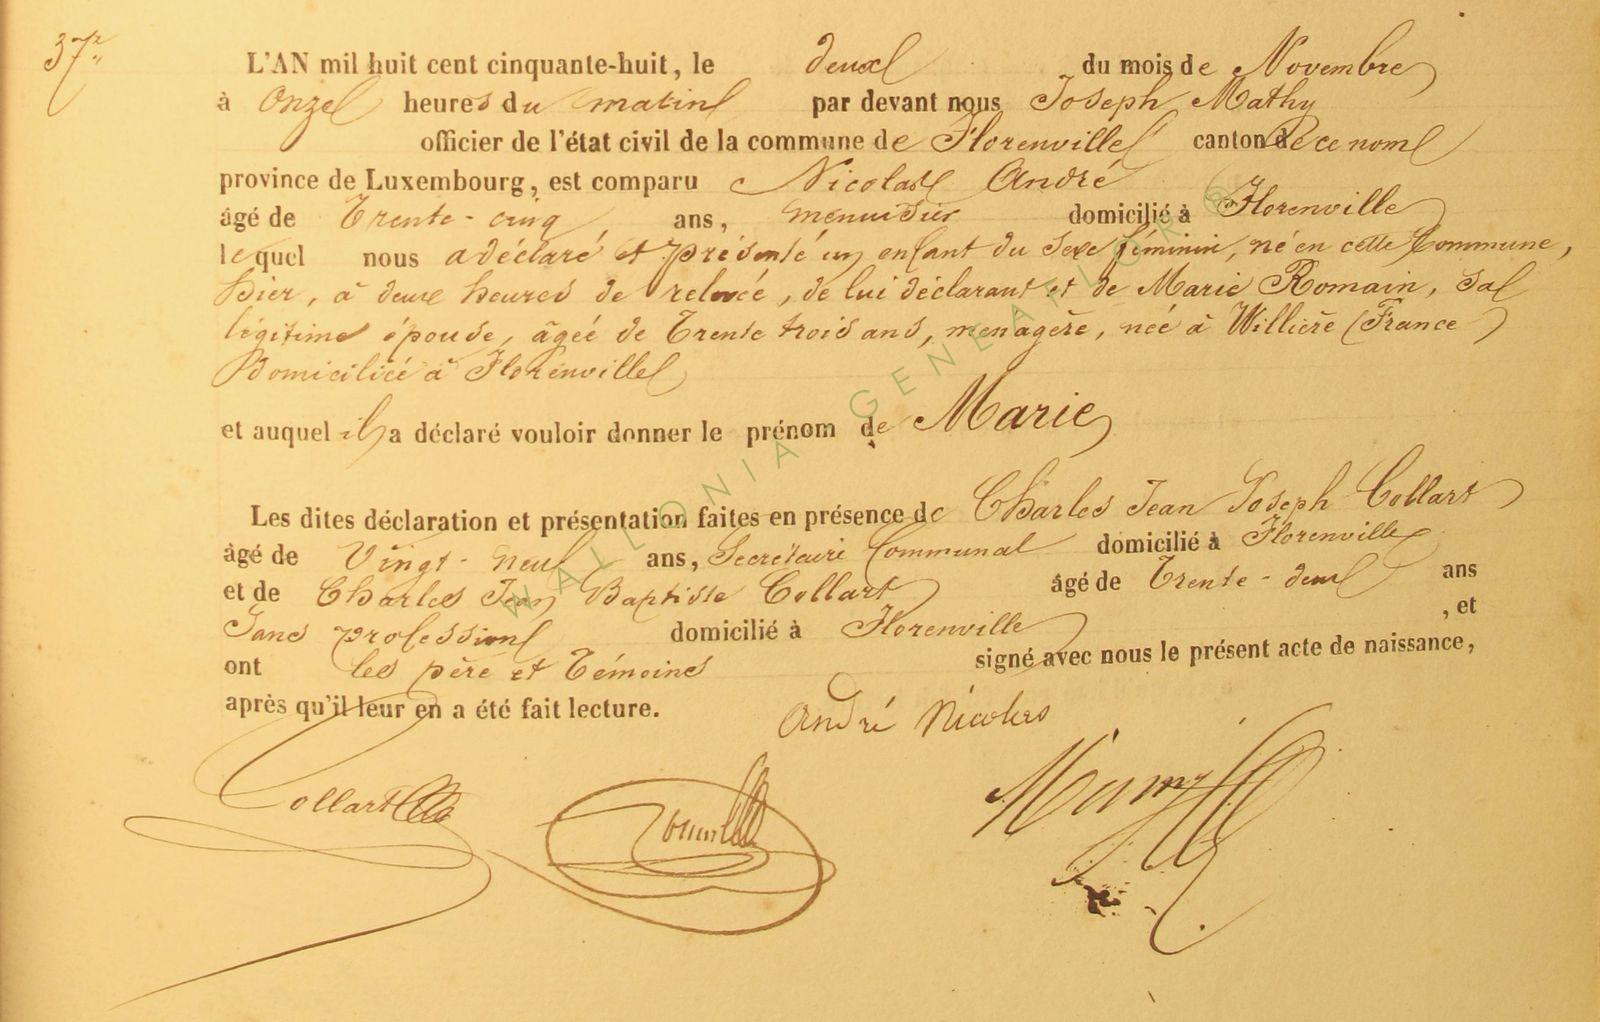 37
L'AN mil huit cent cinquante-huit, le deux du mois de Novembre
à Onze heures du matin par devant nous Joseph Mathy
officier de l'état civil de la commune de Florenville canton de ce nom
province de Luxembourg, est comparu Nicolas André
âgé de Trente-cinq ans, menuisier domicilié à Florenville
lequel nous a déclaré et présenté un enfant du sexe féminin, né en cette Commune,
hier, à deux heures de relevée, de lui déclarant et de Marie Romain, sa
légitime épouse, âgée de Trente trois ans, menagère, née à Willière (France
Domiciliée à Florenville
et auquel il a déclaré vouloir donner le prénom de Marie
Les dites déclaration et présentation faites en présence de Charles Jean Joseph Collart
âgé de Vingt-neuf ans, Secrétaire Communal domicilié à Florenville
et de Charles Jean Baptiste Collart âgé de Trente-deux ans
Sans profession domicilié à Florenville , et
ont les père et Témoins signé avec nous le présent acte de naissance,
après qu'il leur en a été fait lecture.
André Nicolas
Collart
WALLONIA GENEALOGY